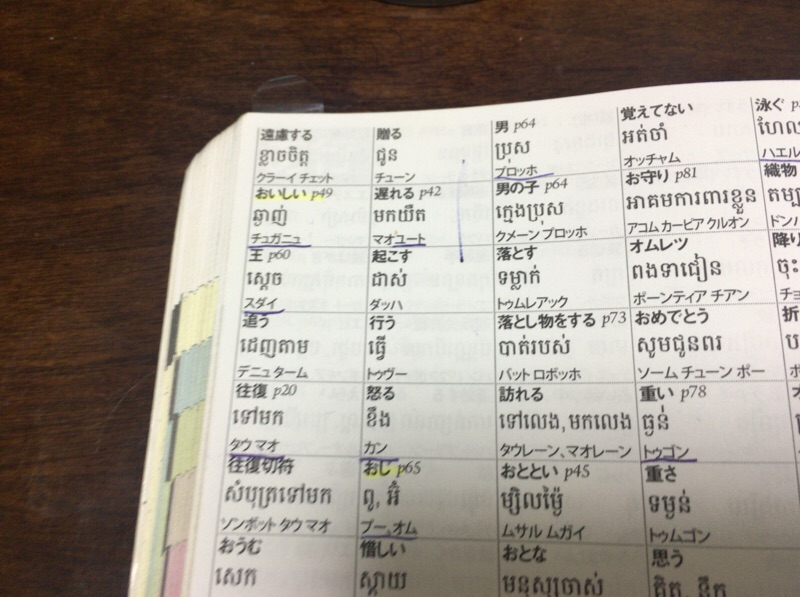 遠慮する
ខ្លាចចិត្ត
クラーイ チェット
おいしい p49
ឆ្ងាញ់
チュガニュ
王 p60
ស្តេច
スダイ
追う
ដេញតាម
デニュ ターム
往復 p20
ទៅមក
タウ マオ
往復切符
សំបុត្រទៅមក
ソンボット タウ マオ
おうむ
សេក
贈る
ជូន
チューン
遅れる p42
មកយឺត
マオユート
起こす
ដាស់
ダッハ
行う
ធ្វើ
トゥヴー
怒る
ខឹង
カン
おじ p65
ពូ, អ៊ំ
プー、オム
惜しい
ស្តាយ
男 p64
ប្រុស
プロッホ
男の子 p64
ក្មេងប្រុស
クメーン プロッホ
落とす
ទម្លាក់
トゥムレアック
落とし物をする p73
បាត់របស់
バット ロボッホ
訪れる
ទៅលេង, មកលេង
タウレーン、マオレーン
おととい p45
ម្សិលម្ង៉ៃ
ムサル ムガイ
おとな
មនុស្សចាស់
覚えてない
អត់ចាំ
オッチャム
お守り p81
អាគមការពារខ្លួន
アコム カーピア クルオン
オムレツ
ពងទាជៀន
ポーンティア チアン
おめでとう
សូមជូនពរ
ソーム チューン ポー
重い p78
ធ្ងន់
トゥゴン
重さ
ទម្ងន់
トゥムゴン
思う
គិត, នឹក
泳ぐ
ហែល
ハエル
織物
降り
ចុះ
折